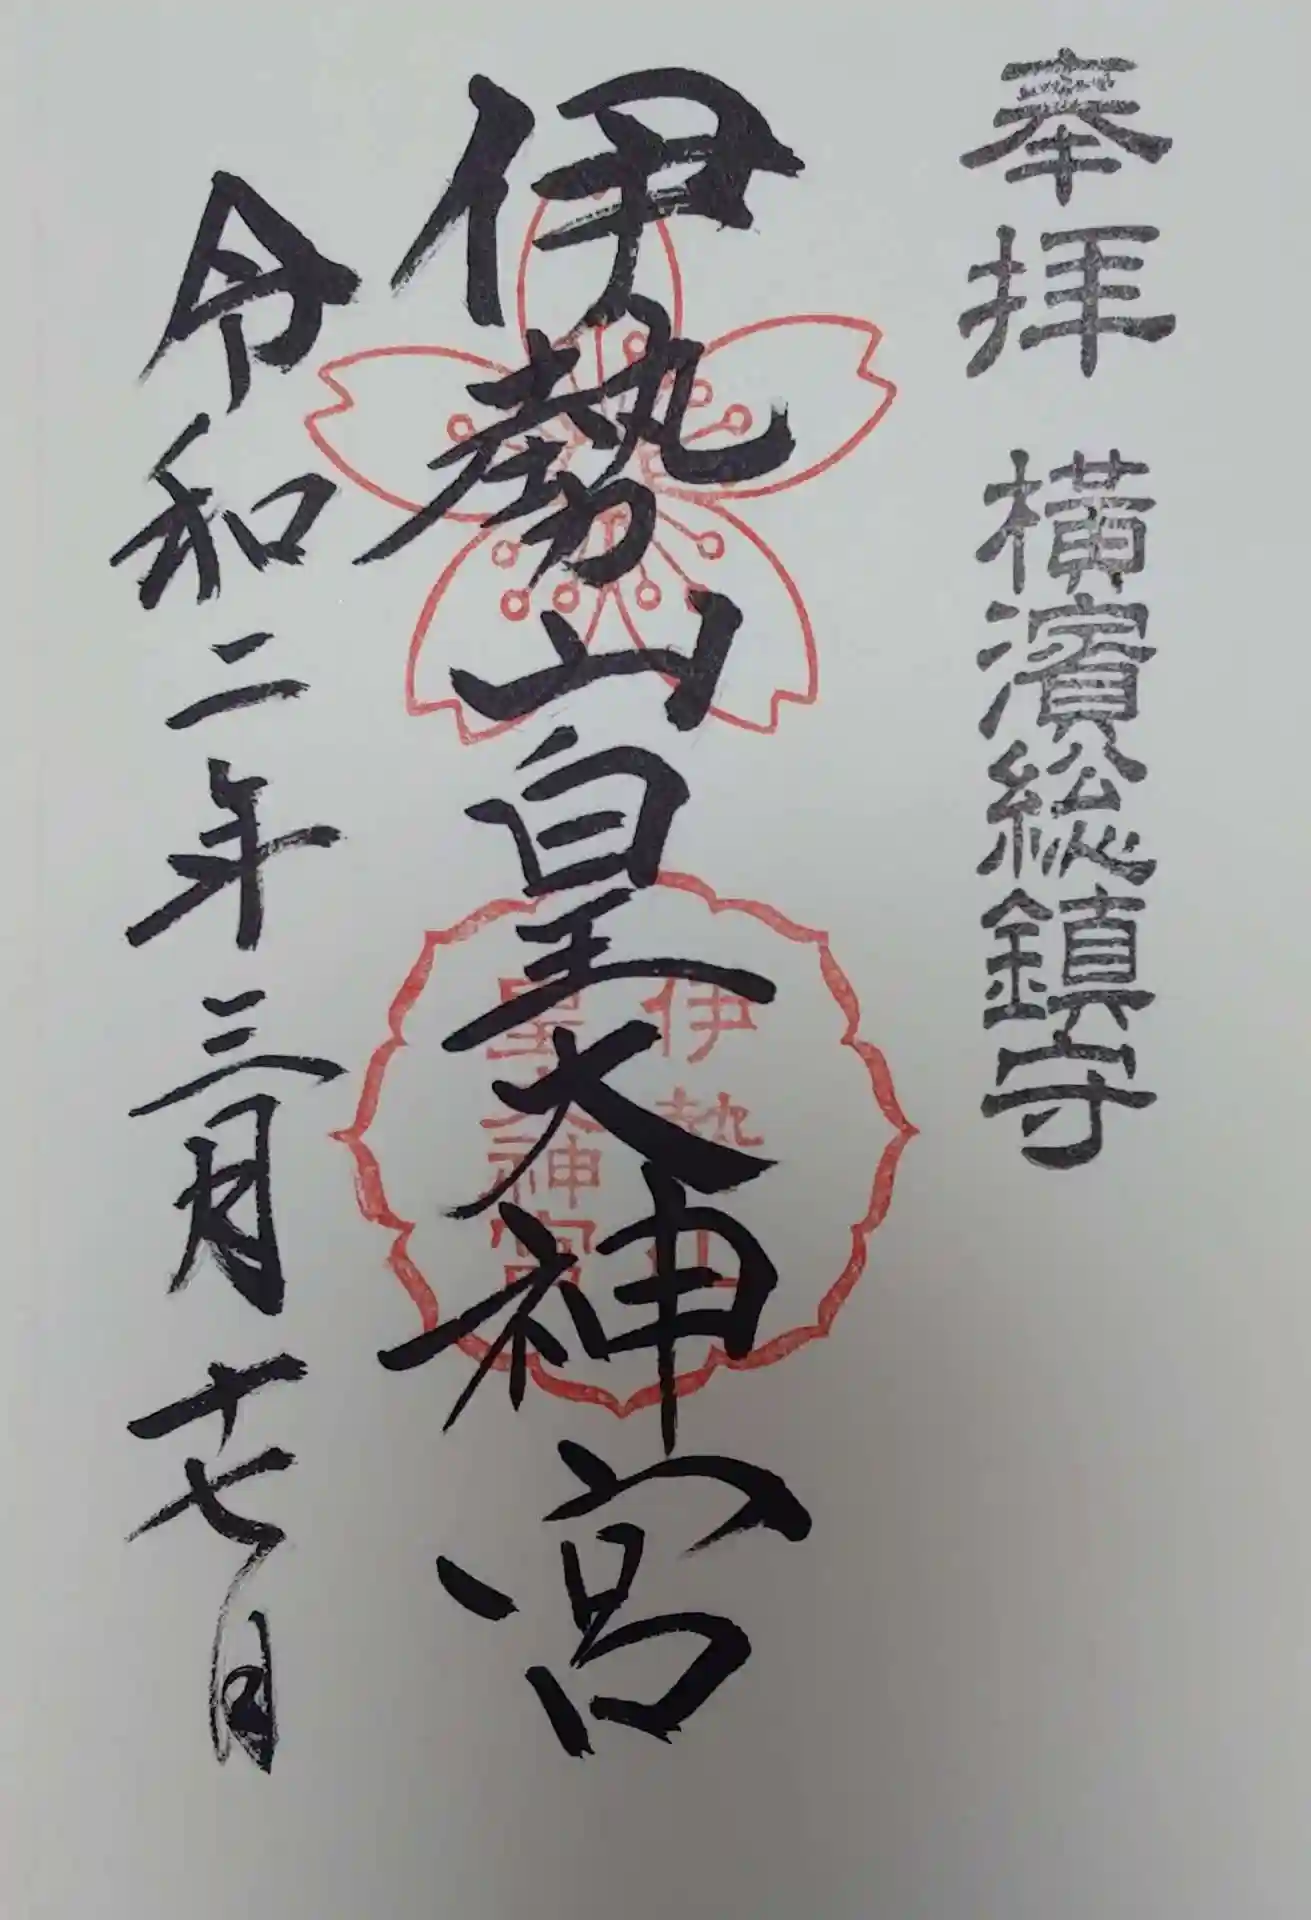 奉拝 横濱総鎮守
伊勢山皇大神宮
伊勢山
皇大神宮
令和二年三月十七日